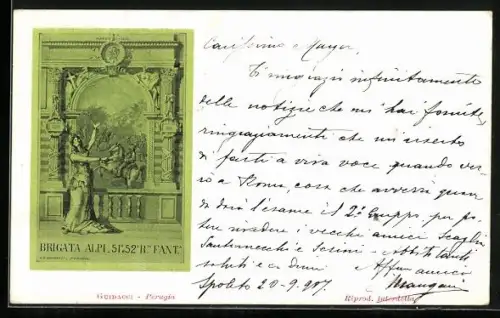 BRIGATA ALPI. 51º.52º Rº. FANT.ª
GUIDACCI - Perugia
Carissimo Mayer
Ti ringrazio infinitamente
delle notizie che mi hai fornite,
ringraziamenti che mi riserbo
di farti a viva voce quando ver
rò a Roma, cosa che avverrà quan
do darò l'esame il 2º Gruppo, per po
tere rivedere i vecchi amici Scaglia
e - Abbiti tanti
saluti e
Affmo amico
Spoleto 20-9.907.
Riprod. interdetta